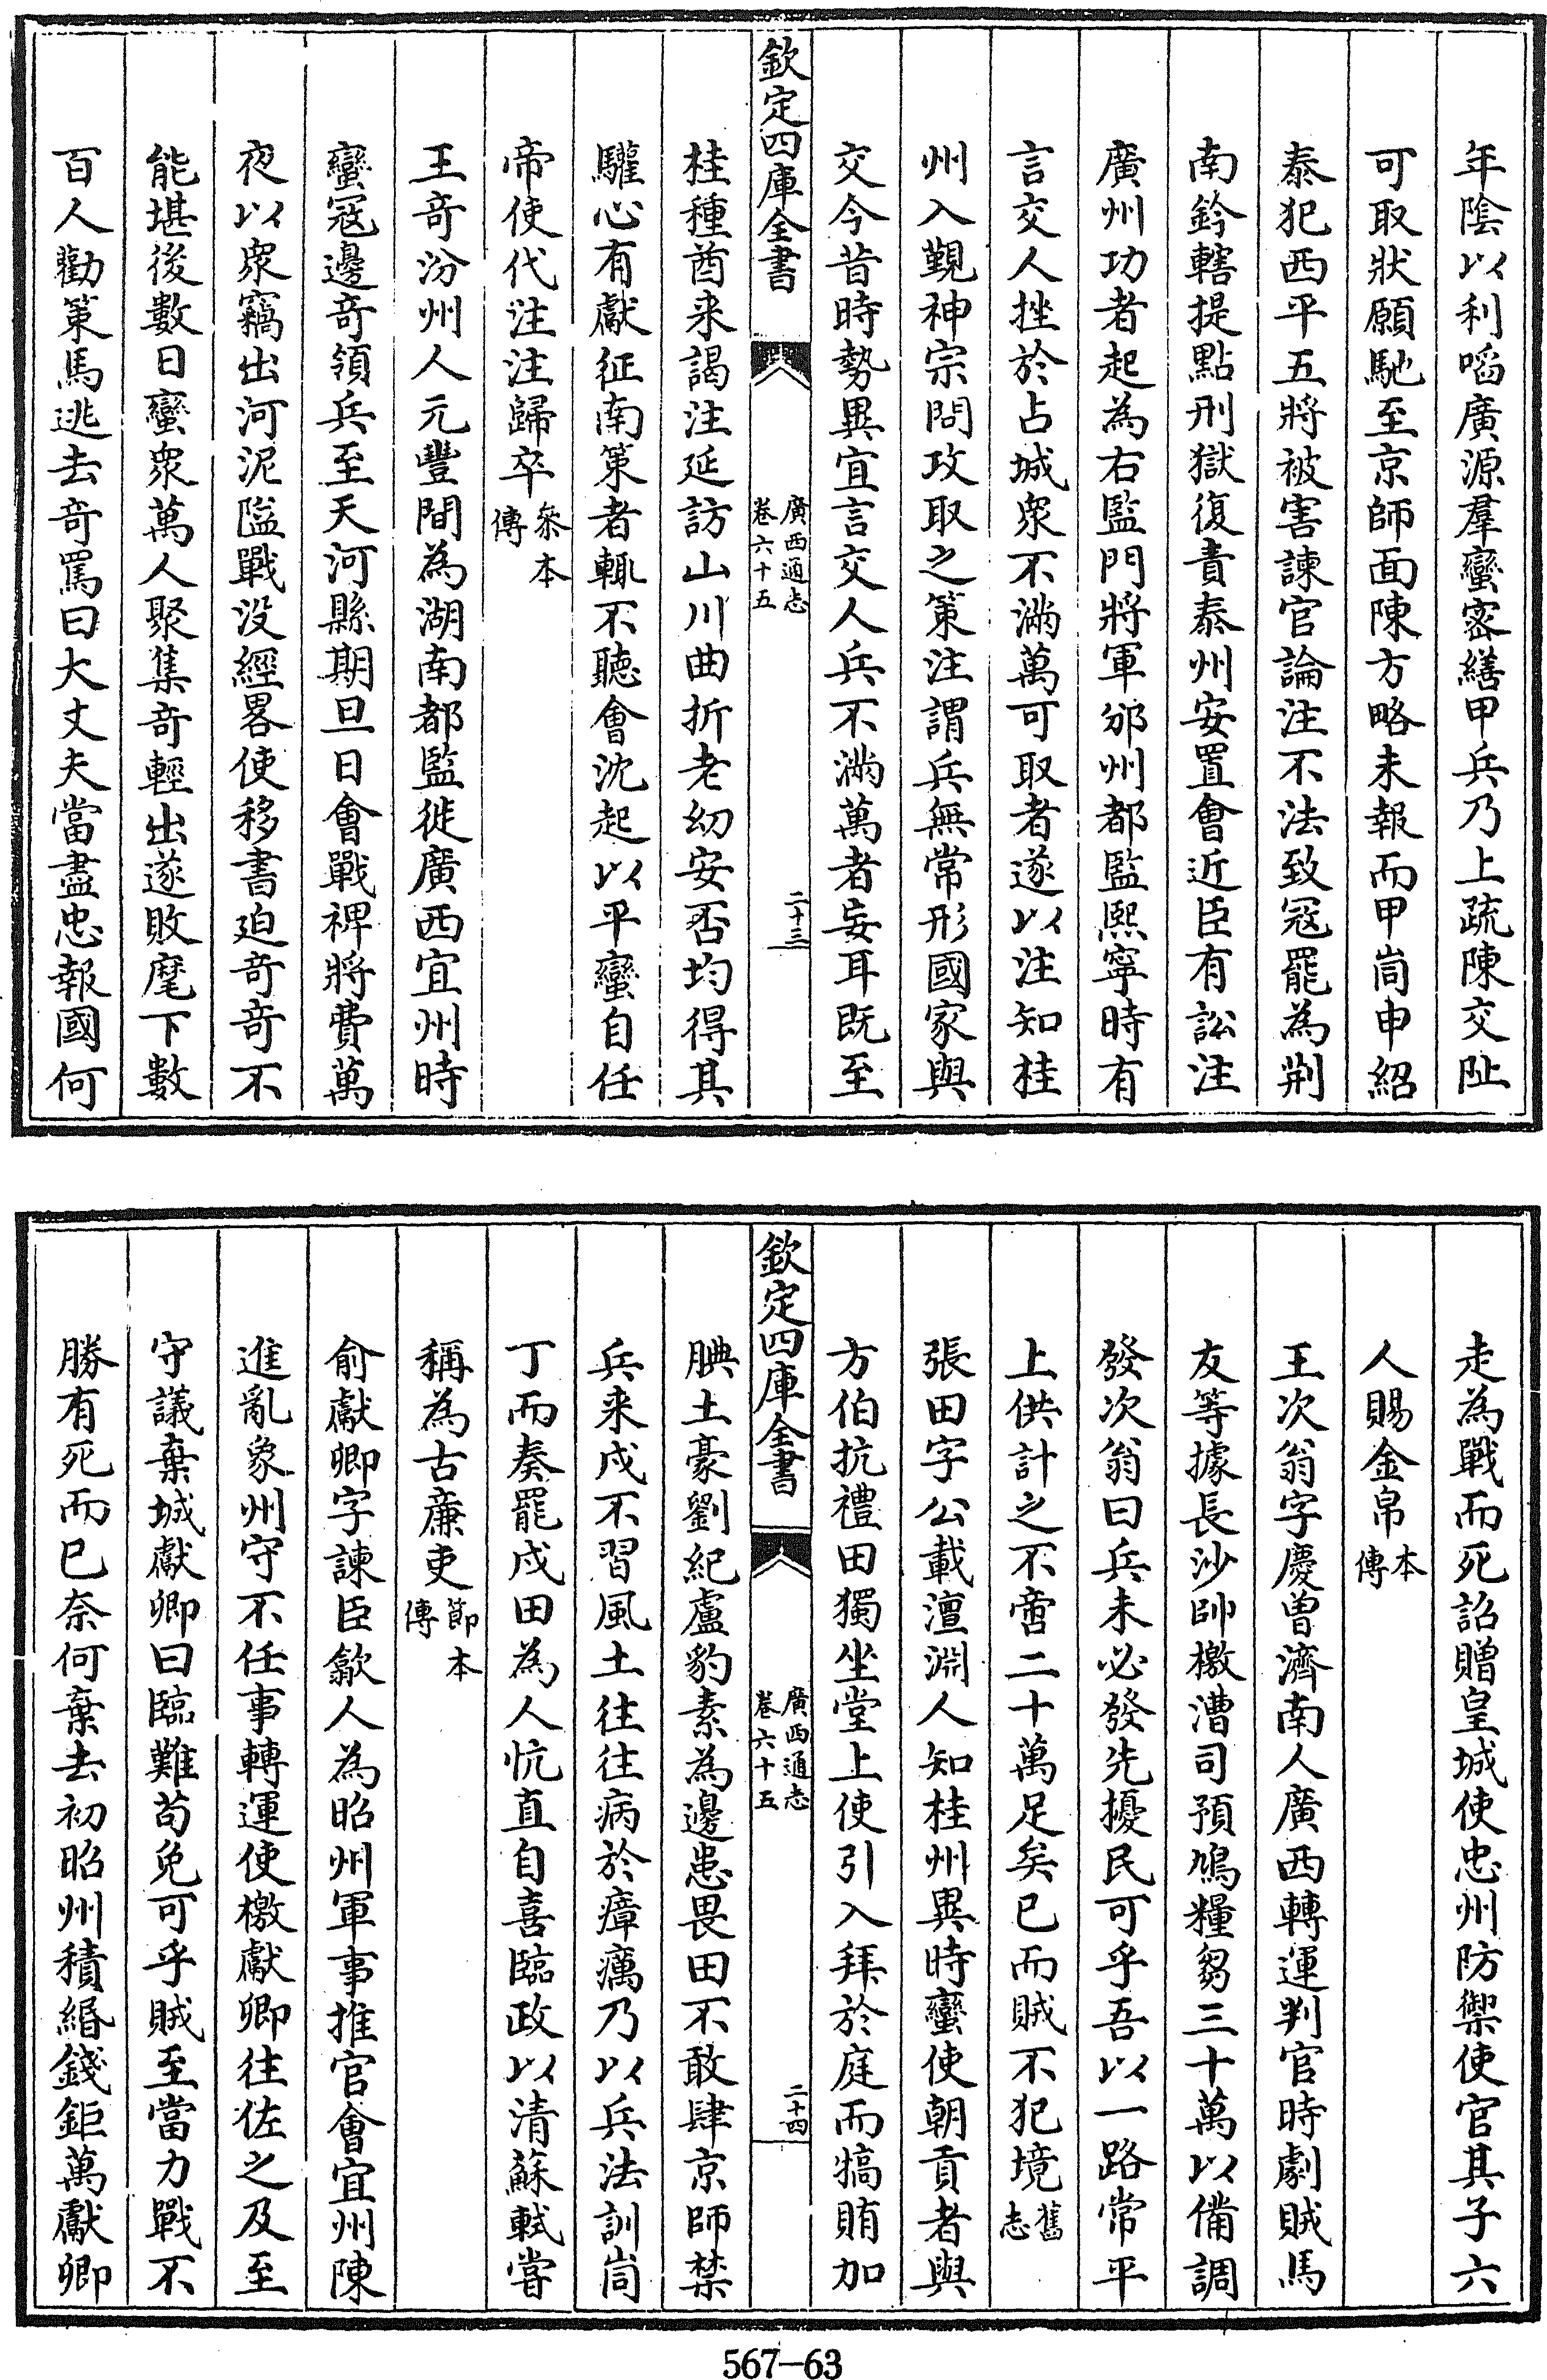 年陰以利啗廣源羣蠻密繕甲兵乃上疏陳交阯
可取狀願馳至京師面陳方略未報而甲峝申紹
泰犯西平五將被害諫官論注不法致冦罷為荆
南鈐轄提點刑獄復責泰州安置會近臣有訟注
廣州功者起為右監門將軍邠州都監熙寧時有
言交人挫於占城衆不滿萬可取者遂以注知桂
州入覲神宗問攻取之策注謂兵無常形國家與
交今昔時勢異宜言交人兵不滿萬者妄耳既至
欽定四庫全書
廣西通志
卷六十五
二十三
桂種酋来謁注延訪山川曲折老幼安否均得其
驩心有獻征南策者輒不聽會沈起以平蠻自任
帝使代注注歸卒叅本傳
王竒汾州人元豐間為湖南都監徙廣西宜州時
蠻冦邊竒領兵至天河縣期旦日會戰裨將費萬
夜以衆竊出河泥隘戰没經畧使移書迫竒竒不
能堪後數日蠻衆萬人聚集竒輕出遂敗麾下數
百人勸策馬逃去竒罵曰大丈夫當盡忠報國何
走為戰而死詔贈皇城使忠州防禦使官其子六
人賜金帛本傳
王次翁字慶曽濟南人廣西轉運判官時劇賊馬
友等據長沙帥檄漕司預鳩糧芻三十萬以備調
發次翁曰兵未必發先擾民可乎吾以一路常平
上供計之不啻二十萬足矣已而賊不犯境舊志
張田字公載澶淵人知桂州異時蠻使朝貢者與
方伯抗禮田獨坐堂上使引入拜於庭而犒賄加
欽定四庫全書
廣西通志
卷六十五
二十四
腆土豪劉紀盧豹素為邊患畏田不敢肆京師禁
兵来戍不習風土往往病於瘴癘乃以兵法訓峝
丁而奏罷戍田為人忼直自喜臨政以清蘇軾嘗
稱為古廉吏節本傳
俞獻卿字諫臣歙人為昭州軍事推官會宜州陳
進亂象州守不任事轉運使檄獻卿往佐之及至
守議棄城獻卿曰臨難苟免可乎賊至當力戰不
勝有死而已奈何棄去初昭州積緡錢鉅萬獻卿
567-63